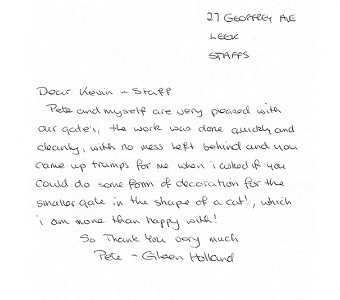 27 GEOFFREY AVE
LEEK
STAFFS
Dear Kevin + Staff
Pete and myself are very pleased with
our gate's, the work was done quickly and
cleanly, with no mess left behind and you
came up trumps for me when i asked if you
could do some form of decoration for the
smaller gate in the shape of a cat!, which
i am more than happy with!
So Thank You very much
Pete + Gileen Holland